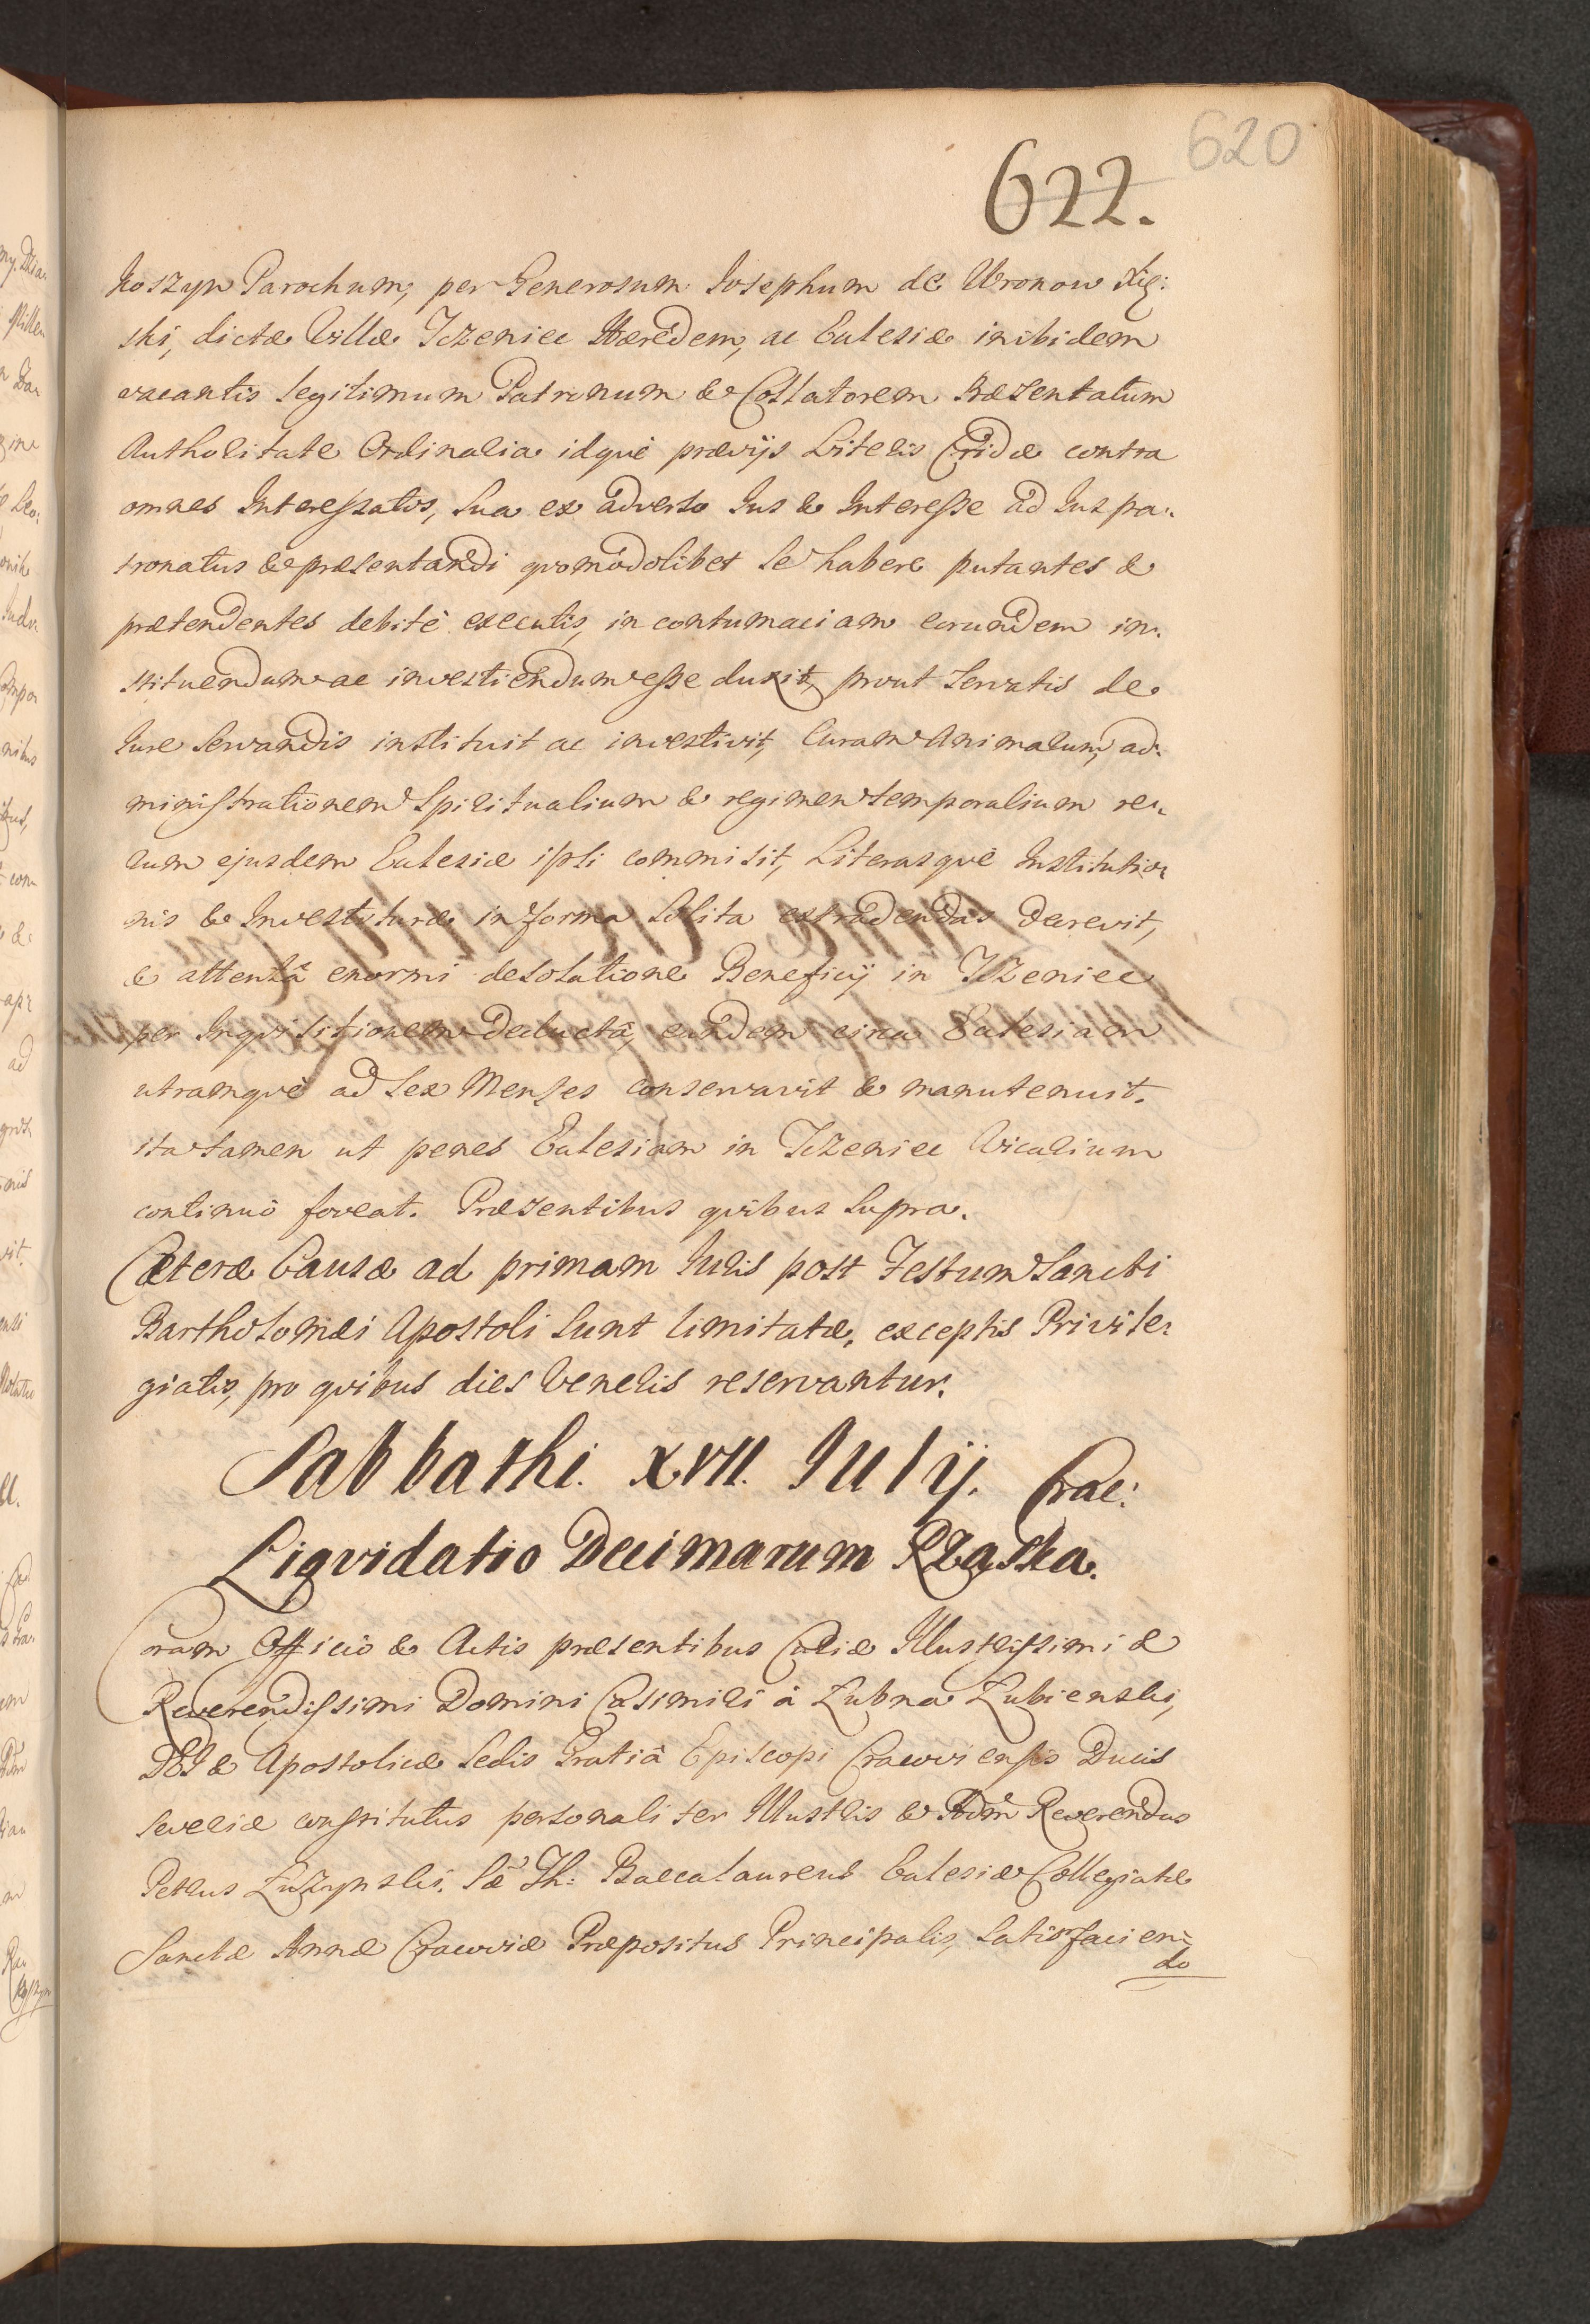 620
622.
koszyn Parochum, per Generosum Josephum de Wronow Lig:
ski, dictæ Villæ Jczeniec Hæredem, ac Ecclesiæ inibidem
vacantis legitimum Patronum & Collatorem Præsentatum
Authoritate Ordinaria idquè prævijs Literis Cridæ contra
omnes Interessatos, sua ex adverso Jus & Interesse ad Jus pa:
tronatus & præsentandi qvomodolibet se habere putantes &
prætendentes debitè executis, in contumaciam eorundem in:
stituendum ac investiendum esse duxit, prout servatis de
Jure servandis instituit ac investivit, Curam Animarum, ad:
ministrationem Spiritualium & regimen temporalium re:
rum ejusdem Ecclesiæ ipsi commisit, Literasquè Institutio:
nis & Investituræ in forma solita extradendas decrevit,
& attentâ enormi desolatione Beneficij in Jczeniec
per Inqvisitionem deductâ, eundem circa Ecclesiam
utramqvè ad sex Menses conservavit & manutenuit.
ita tamen ut penes Ecclesiam in Jczeniec Vicarium
continuò foveat. Præsentibus qvibus supra.
Cæteræ Causæ ad primam Juris post Festum Sancti
Bartholomæi Apostoli sunt limitatæ, exceptis Privile:
giatis, pro qvibus dies Veneris reservantur.
Sabbathi. XVII. Julij. Crac:
Liqvidatio Decimarum Rząska.
Coram Officio & Actis præsentibus Curiæ Illustrissimi &
Reverendissimi Domini Casimiri à Łubna Łubienski,
DEI & Apostolicæ Sedis Gratiâ Episcopi Cracoviensis Ducis
Severiæ constitutus personaliter Illustris & Adm Reverendus
Petrus Łuszynski. Sæ Th: Baccalaureus Ecclesiæ Collegiatæ
Sanctæ Annæ Cracoviæ Præpositus Principalis, satisfacien:
do